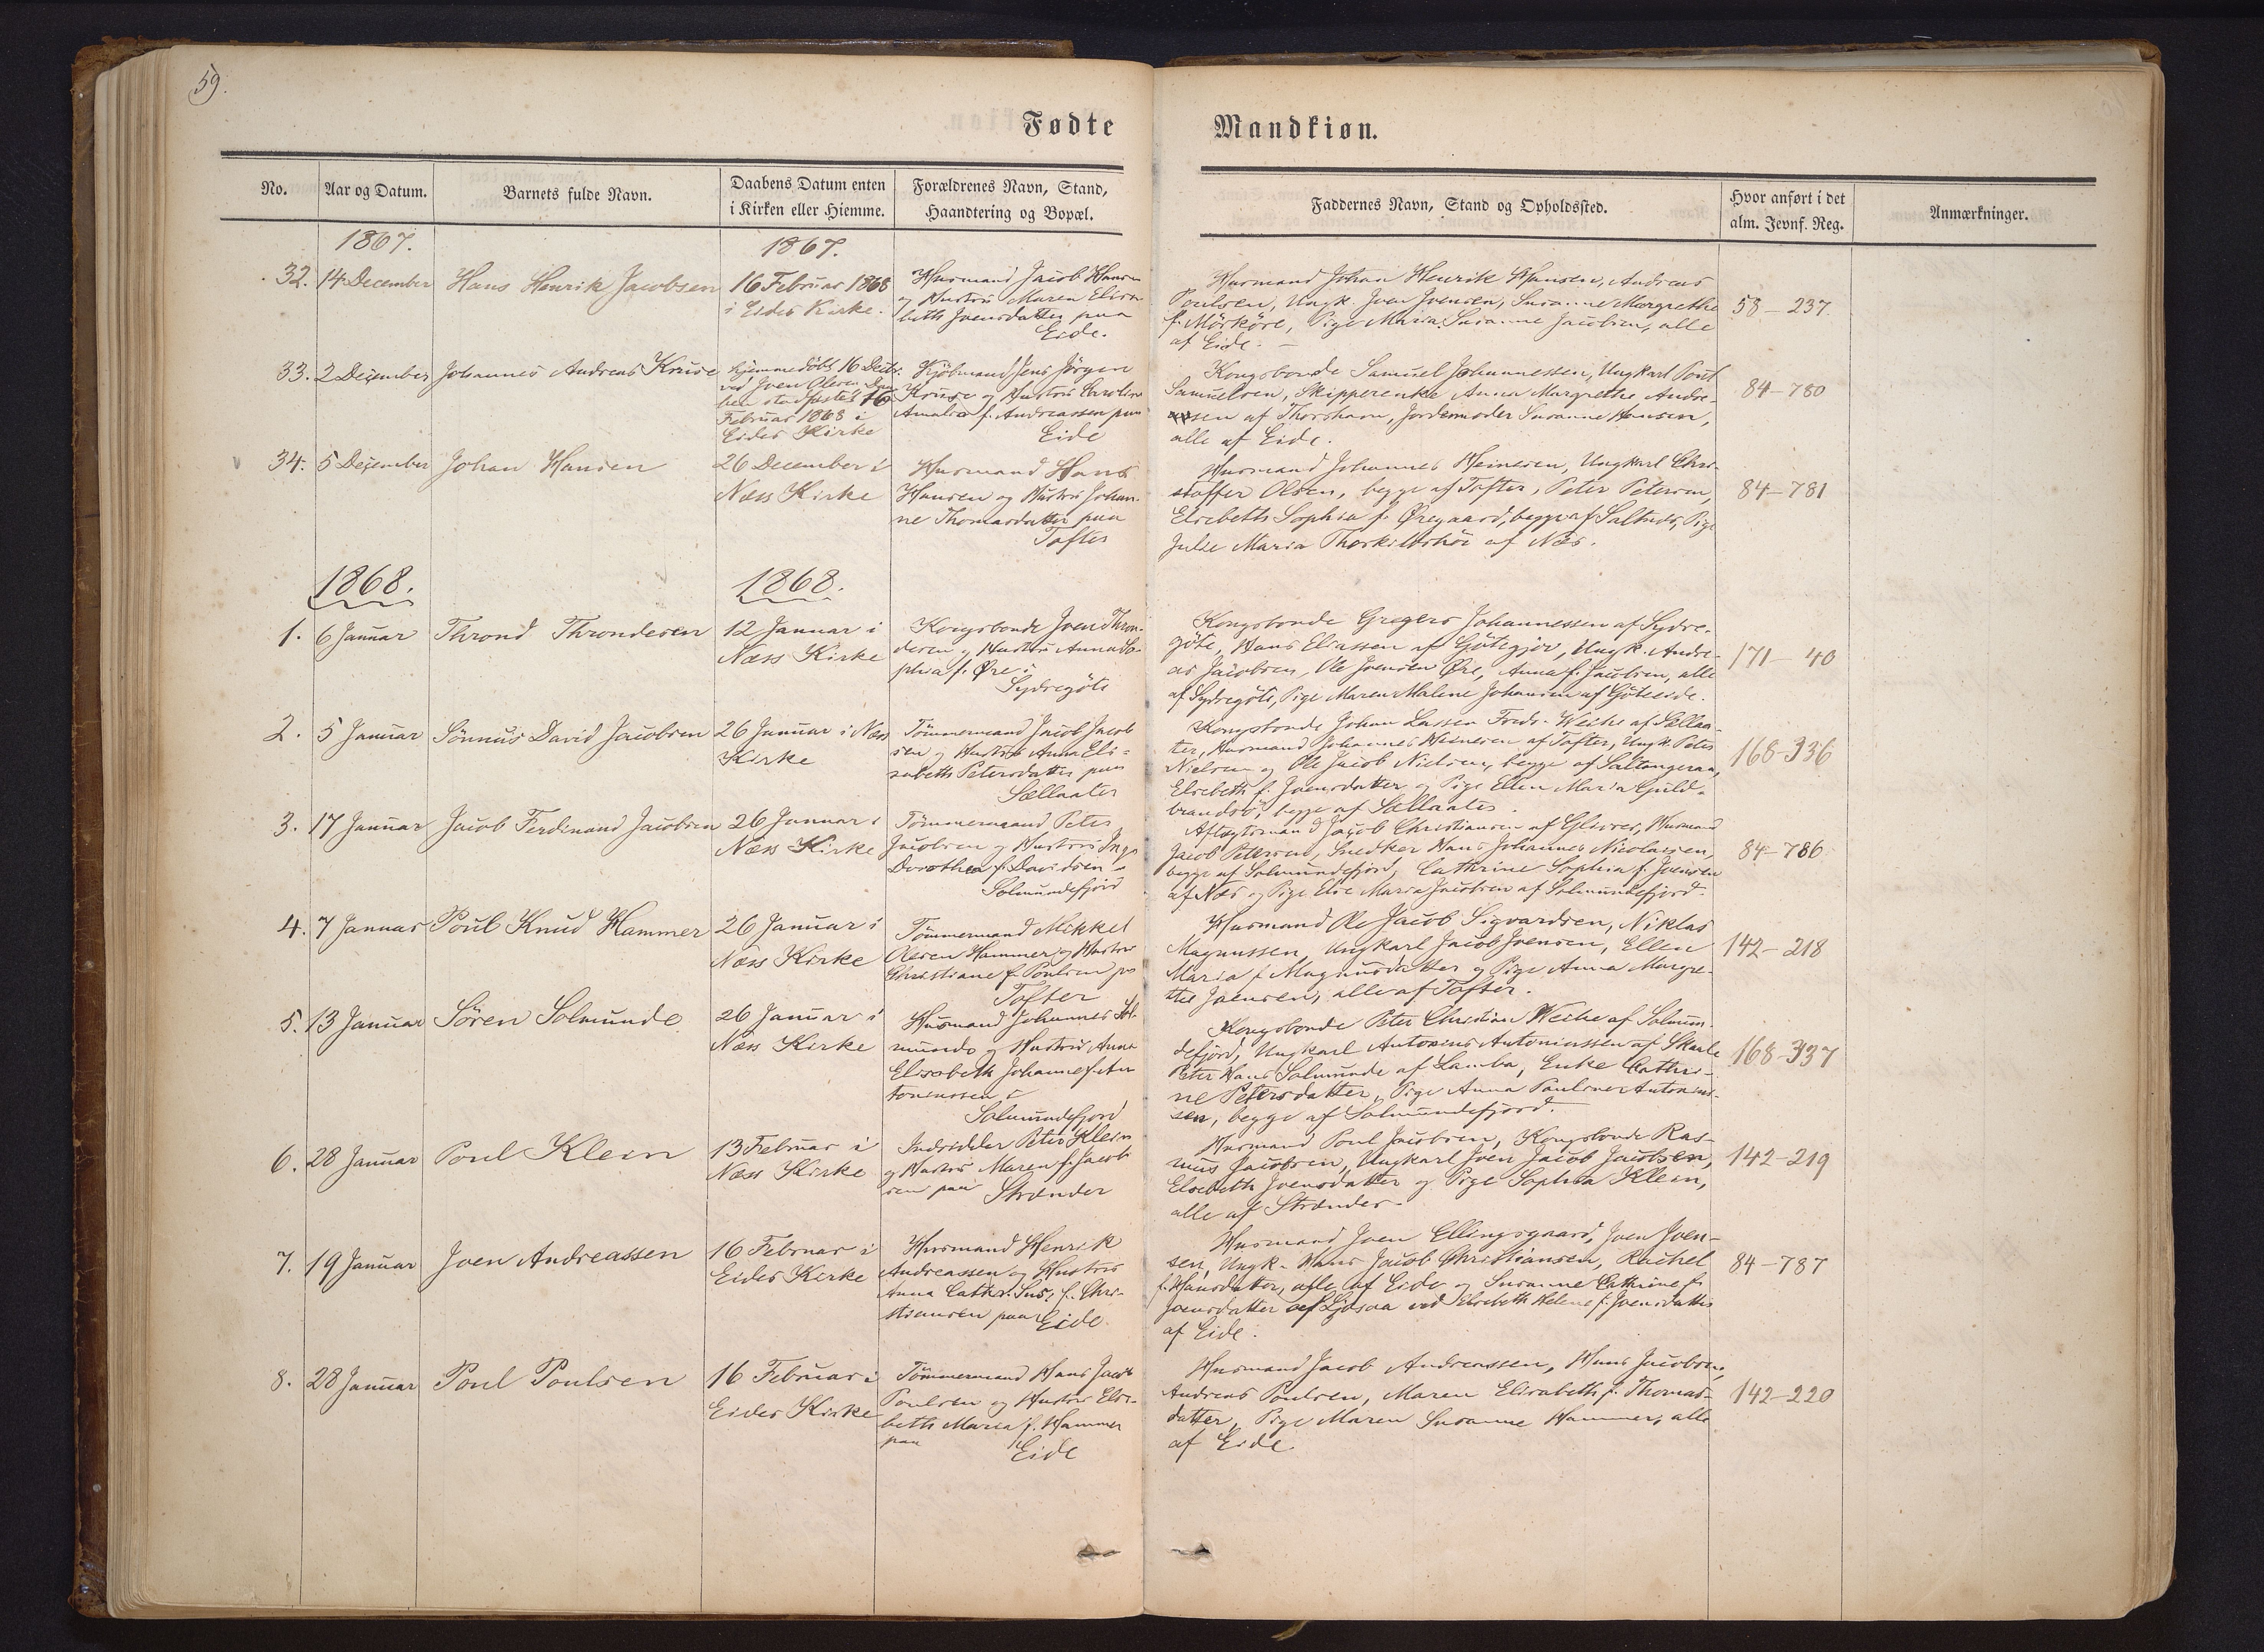 59.
Fødte
Mandkiøn.
No.
Aar og Datum.
Barnets fulde Navn.
Daabens Datum enten
i Kirken eller Hiemme.
Forældrenes Navn, Stand,
Haandtering og Bopæl.
Faddernes Navn, Stand og Opholdssted.
Hvor anført i det
alm. Jevnf. Reg.
Anmærkninger.
1867.
1867.
32.
14 December
Hans Henrik Jacobsen
16 Februar 1868
i Eides Kirke.
Husmand Jacob Hansen
og Hustru Maren Elisa-
beth Joensdatter paa
Eide.
Husmand Johan Henrik Hansen, Andreas
Poulsen, Ungk. Joen Joensen, Susanne Margrethe
f. Mörköre, Pige Maria Susanne Jacobsen, alle
af Eide.
58-237
33.
2 December
Johannes Andreas Kruse
hjemmedöbt 16 Decbr.
ved Joen Olesen Daa-
ben stadfæstet 16
Februar 1868 i
Eides Kirke
Kjöbmand Jens Jörgen
Kruse og Hustru Caroline
Amalia f. Andreassen paa
Eide
Kongsbonde Samuel Johannessen, Ungkarl Poul
Samuelsen, Skipperenke Anna Margrethe Andre-
assen af Thorshavn, Jordemoder Susanne Hansen,
alle af Eide.
84-780
34.
5 December
Johan Hansen
26 December i
Næss Kirke
Husmand Hans
Hansen og Hustru Johan-
ne Thomasdatter paa
Tofter
Husmand Johannes Heinesen, Ungkarl Chri-
stoffer Olsen, begge af Tofter, Peter Petersen,
Elsebeth Sophia f. Øregaard, begge af Saltnes, Pige
Julie Maria Thorkildshöi af Næs.
84-781
1868.
1868.
1.
6 Januar
Thrond Throndesen
12 Januar i
Næss Kirke
Kongsbonde Joen Thron-
desen og Hustru Anna So-
phia f. Øre i
Sydregöte
Kongsbonde Gregers Johannessen af Sydre-
göte, Hans Eliassen af Götegjov, Ungk. Andre-
as Jacobsen, Ole Joensen Øre, Anna f. Jacobsen, alle
af Sydregöte, Pige Maren Malene Johansen af Göteeide.
171-40
2.
5 Januar
Sönnus David Jacobsen
26 Januar i Næss
Kirke
Tömmermand Jacob Jacob
sen og Hustru Anna Eli-
sabeth Petersdatter paa
Sællaater
Kongsbonde Johan Lassen Fredr. Weihe af Sællaa-
ter, Husmand Johannes Heinesen af Tofter, Ungk. Peter
Nielsen og Ole Jacob Nielsen, begge af Saltangeraa,
Elsebeth f. Joensdatter og Pige Ellen Maria Guld-
brandsö, begge af Sællaater.
168-336
3.
17 Januar
Jacob Ferdinand Jacobsen
26 Januar i
Næss Kirke
Tömmermand Peter
Jacobsen og Hustru Inge
Dorothea f. Davidsen i
Solmundefjord
Aftægtsmand Jacob Christiansen af Glivres, Husmand
Jacob Petersen, Snedker Hans Johannes Nicolaisen,
begge af Solmundefjord, Cathrine Sophia f. Joensen
af Næs og Pige Else Maria Jacobsen af Solmundefjord.
84-786
4.
7 Januar
Poul Knud Hammer
26 Januar i
Næss Kirke
Tömmermand Mikkel
Olesen Hammer og Hustru
Christiane f. Poulsen paa
Tofter
Husmand Ole Jacob Sigvardsen, Niklas
Magnussen, Ungkarl Jacob Joensen, Ellen
Maria f. Magnusdatter og Pige Anna Margre-
the Joensen, alle af Tofter.
142-218
5.
13 Januar
Sören Solmunde
26 Januar i
Næss Kirke
Husmand Johannes Sol-
munde og Hustru Anna
Elisabeth Johanne f. An
toniussen i
Solmundefjord
Kongsbonde Peter Christian Weihe af Solmun-
defjord, Ungkarl Antonius Antoniussen af Skaale
Peter Hans Solmunde af Lamba, Enke Cathri-
ne Petersdatter, Pige Anna Pauline Antonius-
sen, begge af Solmundefjord.
168-337
6.
28 Januar
Poul Klein
13 Februar i
Næss Kirke
Indsidder Peter Klein
og Hustru Maren f. Jacob
sen paa Strænder
Husmand Poul Jacobsen, Kongsbonde Ras-
mus Jacobsen, Ungkarl Joen Jacob Jacobsen,
Elsebeth Joensdatter og Pige Sophia Klein,
alle af Strænder.
142-219
7.
19 Januar
Joen Andreassen
16 Februar i
Eides Kirke
Husmand Henrik
Andreassen og Hustru
Anna Cathr. Sus. f. Chri-
stiansen paa Eide.
Husmand Joen Ellingsgaard, Joen Joen-
sen, Ungk. Hans Jacob Christiansen, Rachel
f. Hansdatter, alle af Eide og Susanne Cathrine f.
Joensdatter af Ljosaa ved Elsebeth Helene f. Joensdatter
af Eide.
84-787
8.
28 Januar
Poul Poulsen
16 Februar i
Eides Kirke
Tömmermand Hans Jacob
Poulsen og Hustru Else-
beth Maria f. Hammer
paa
Eide
Husmand Jacob Andreassen, Hans Jacobsen,
Andreas Poulsen, Maren Elisabeth f. Thomas-
datter, Pige Maren Susanne Hammer, alle
af Eide.
142-220